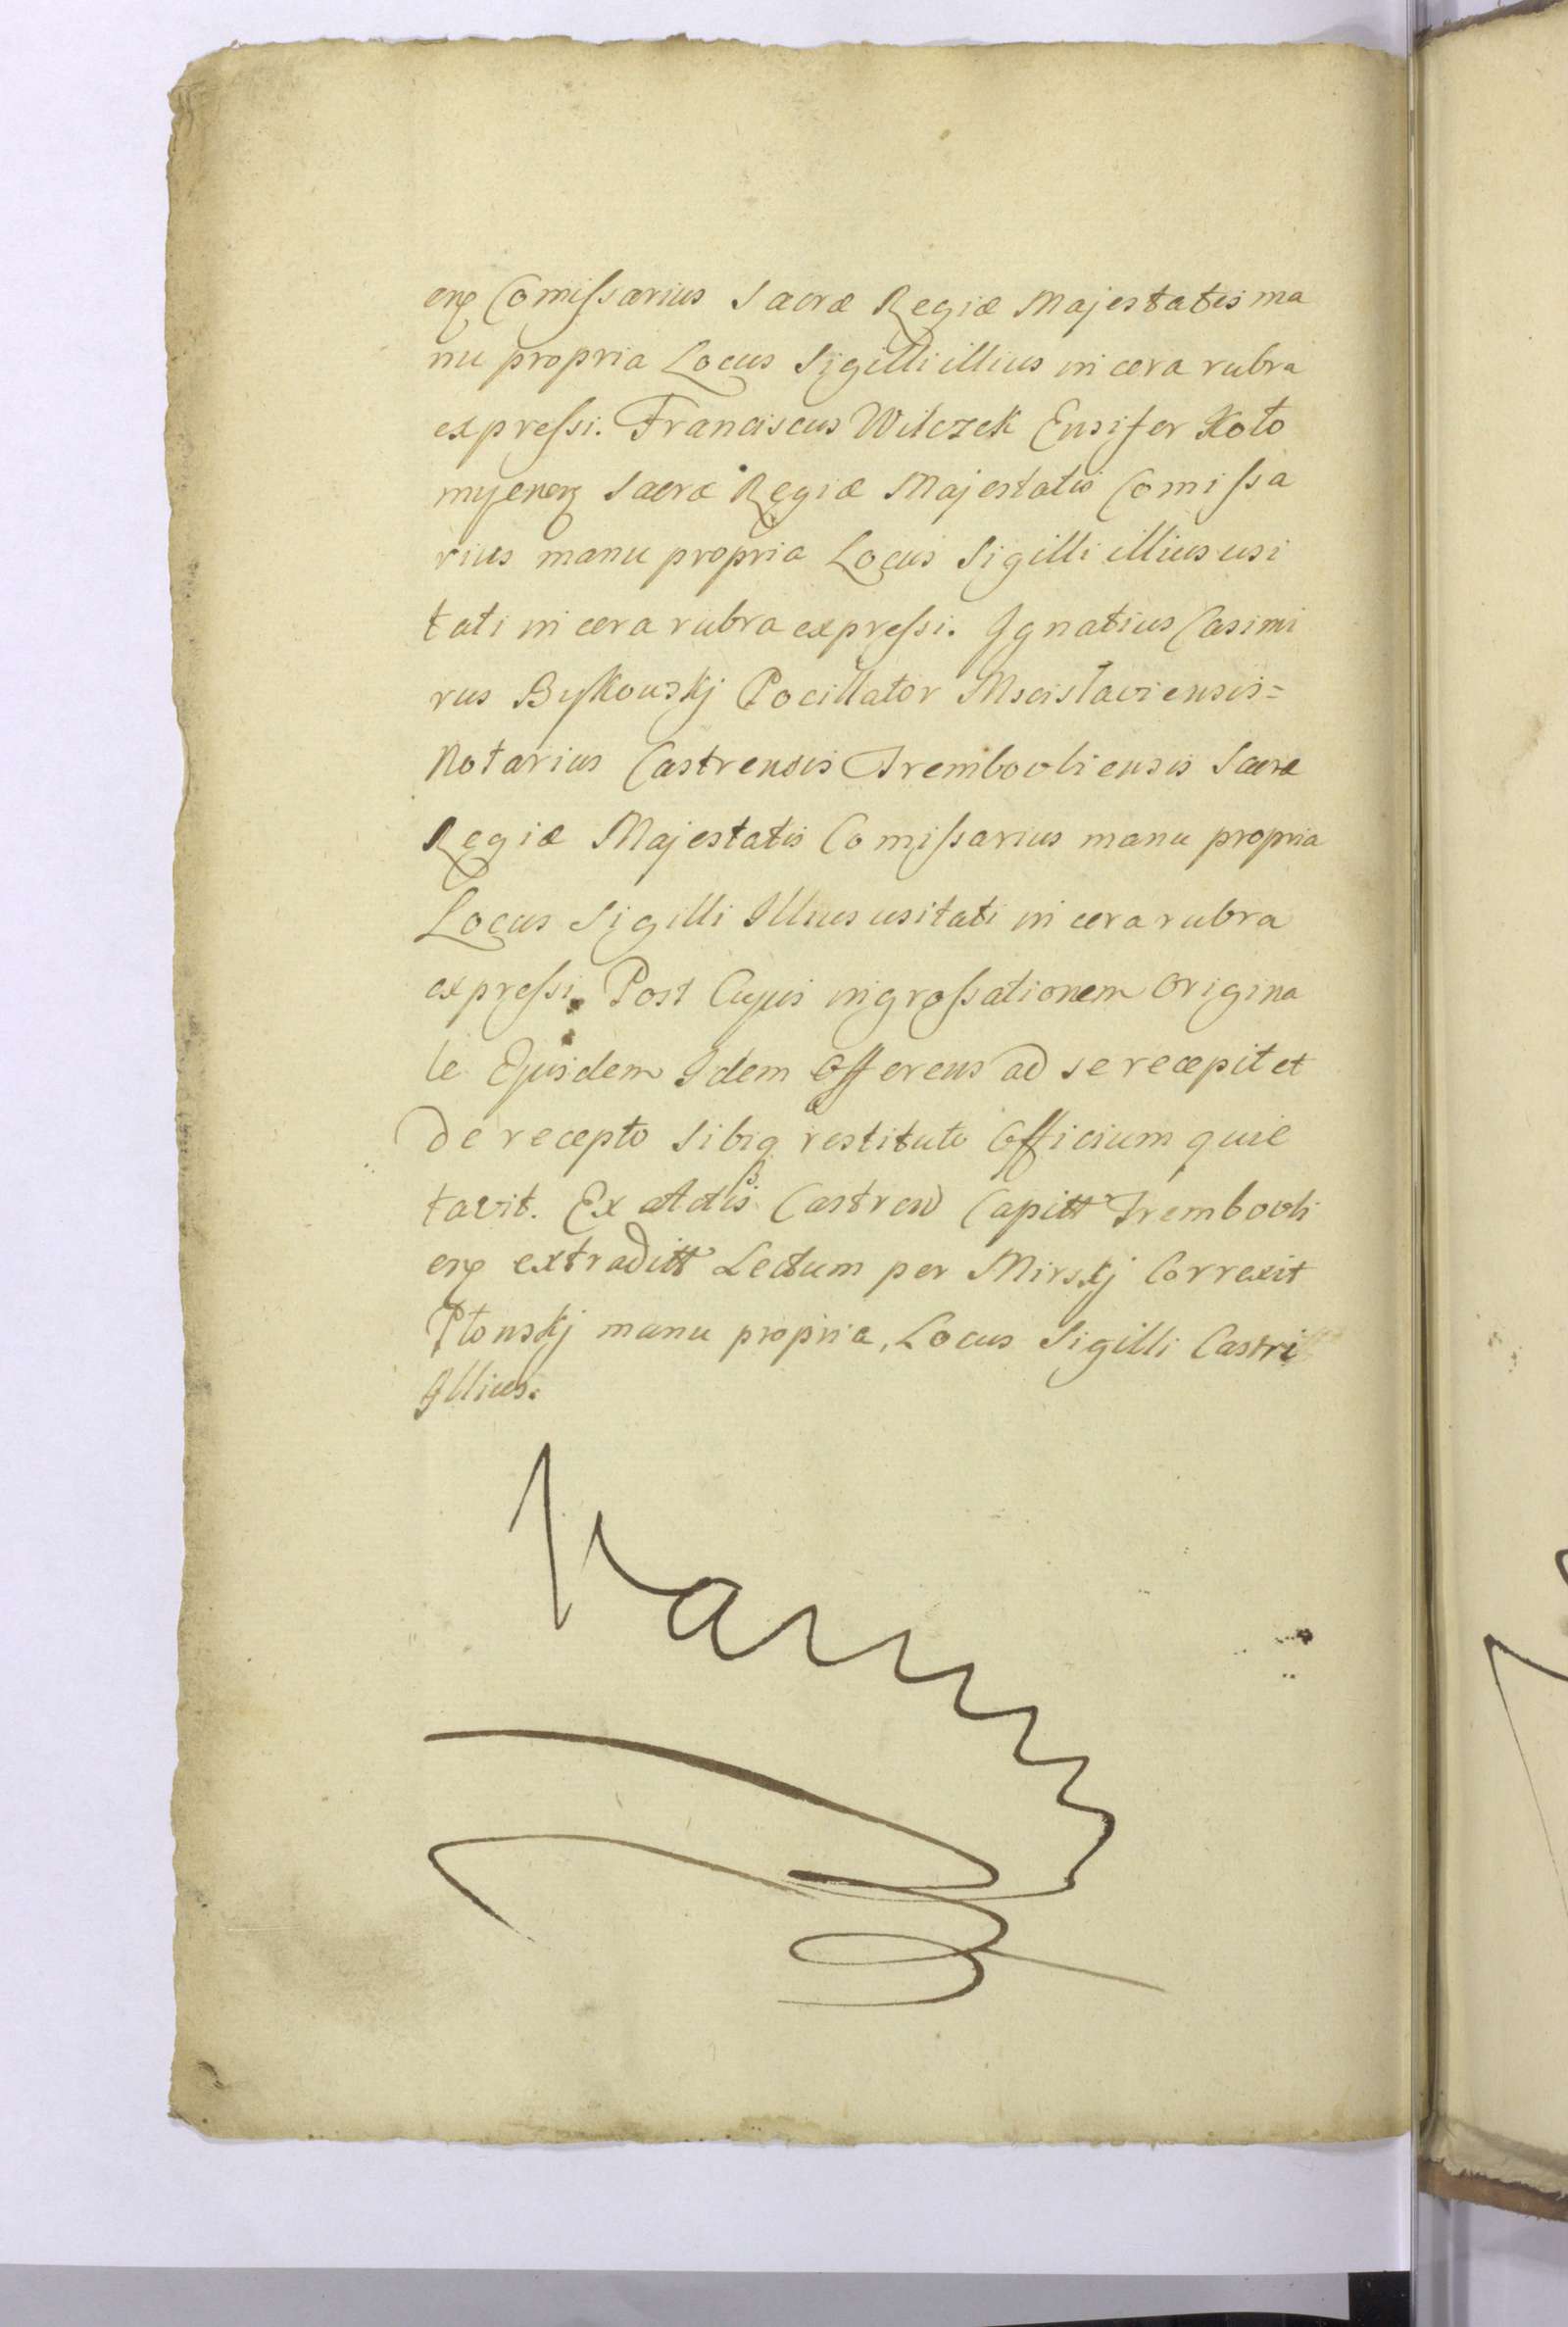 enș Comiſsarius Sacræ Regiæ Majestatis ma
nu propria Locus Sigilli illius in cera rubra
expreſsi. Franciscus Wilczek Ensifer Koło
myenș Sacræ Regiæ Majestatis Comiſsa
rius manu propria Locus Sigilli illius usi
tati in cera rubra expreſsi. Ignatius Casimi
rus Bykowskj Pocillator Mscisłaviensis=
Notarius Castrensis Trembovliensis Sacræ
Regiæ Majestatis Comiſsarius manu propria
Locus Sigilli Illius usitati in cera rubra
expreſsi. Post Cujus ingroſsationem Origina
le Ejusdem Idem Offerens ad se recepit et
de recepto Sibiq restituto Officium quie
tavit. Ex Actis Castren Capitt Trembovli
enș extraditt Lectum per Mirskj Correxit
Płonskj manu propria, Locus Sigilli Castri
Illius.